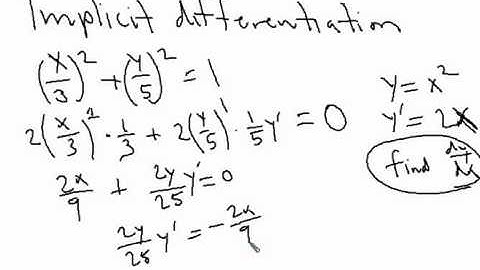 Implicit differentiation
(x/3)² + (y/5)² = 1
2(x/3)¹ · 1/3 + 2(y/5)¹ · 1/5 y' = 0
2x/9 + 2y/25 y' = 0
2y/25 y' = - 2x/9
y = x²
y' = 2x
find dy/dx